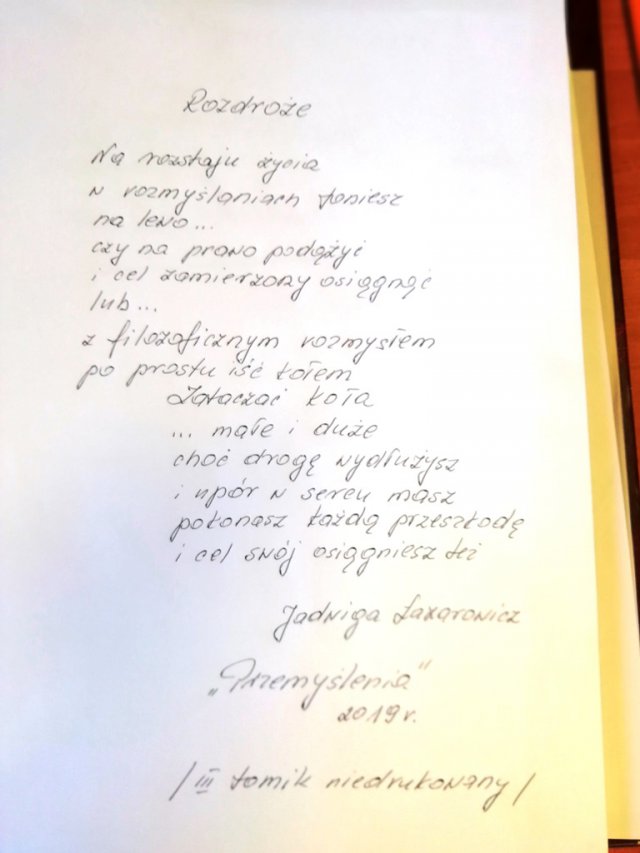 Rozdroże
Na rozstaju życia
w rozmyślaniach toniesz
na lewo...
czy na prawo podążyć
i cel zamierzony osiągnąć
lub...
z filozoficznym rozmysłem
po prostu iść kołem
Zataczać koła
... małe i duże
choć drogę wydłużysz
i upór w sercu masz
pokonasz każdą przeszkodę
i cel swój osiągniesz też
Jadwiga Łazarowicz
„Przemyślenia"
2019 r.
/ III tomik niedrukowany /